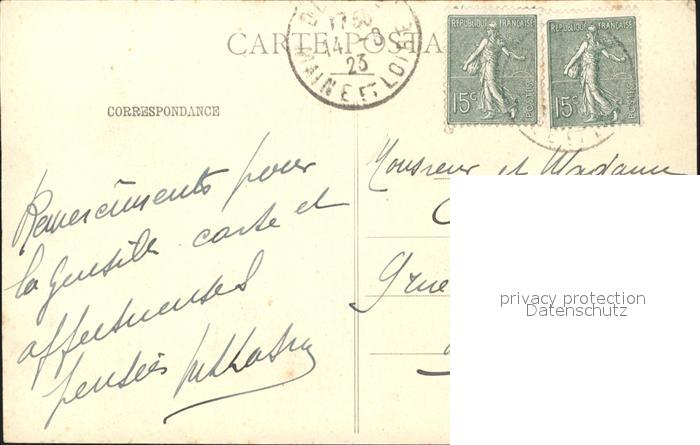 CARTE POSTA
17 30
14 -8
23
MAINE ET LOIRE
REPUBLIQUE FRANÇAISE
15c
POSTES
REPUBLIQUE FRANÇAISE
15c
POSTES
CORRESPONDANCE
Remerciements pour
la gentille carte et
affectueuses
pensées
Monsieur et Madame
privacy protection
Datenschutz